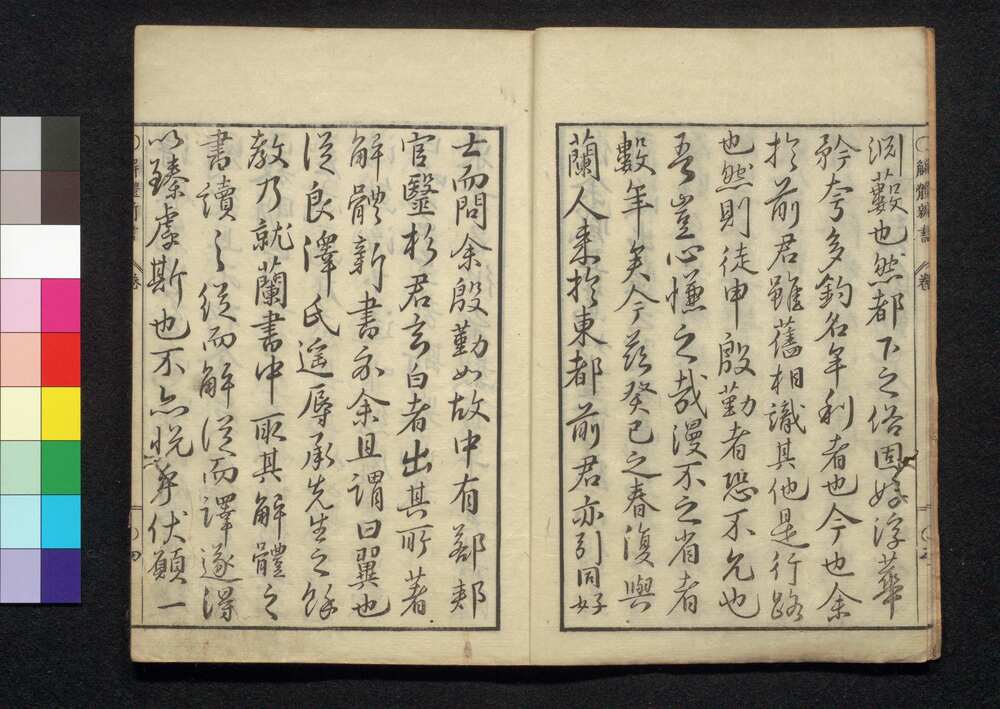 〇解體新書
卷
淵藪也然都下之俗固好浮華
矜夸多釣名牟利者也今也余
於前君雖舊相識其他是行路
也然則徒申殷勤者恐不允也
吾豈心慊之哉漫不之省者
數年矣今茲癸巳之春復與
蘭人來於東都前君亦引同好
士而問余殷勤如故中有鄀郟
官醫杉君玄白者出其所著
解體新書示余且謂曰翼也
從良澤氏遙辱承先生之餘
教乃就蘭書中取其解體之
書讀之從而解從而譯遂得
以臻虖斯也不亦悅乎伏願一
〇解體新書
卷
〇四